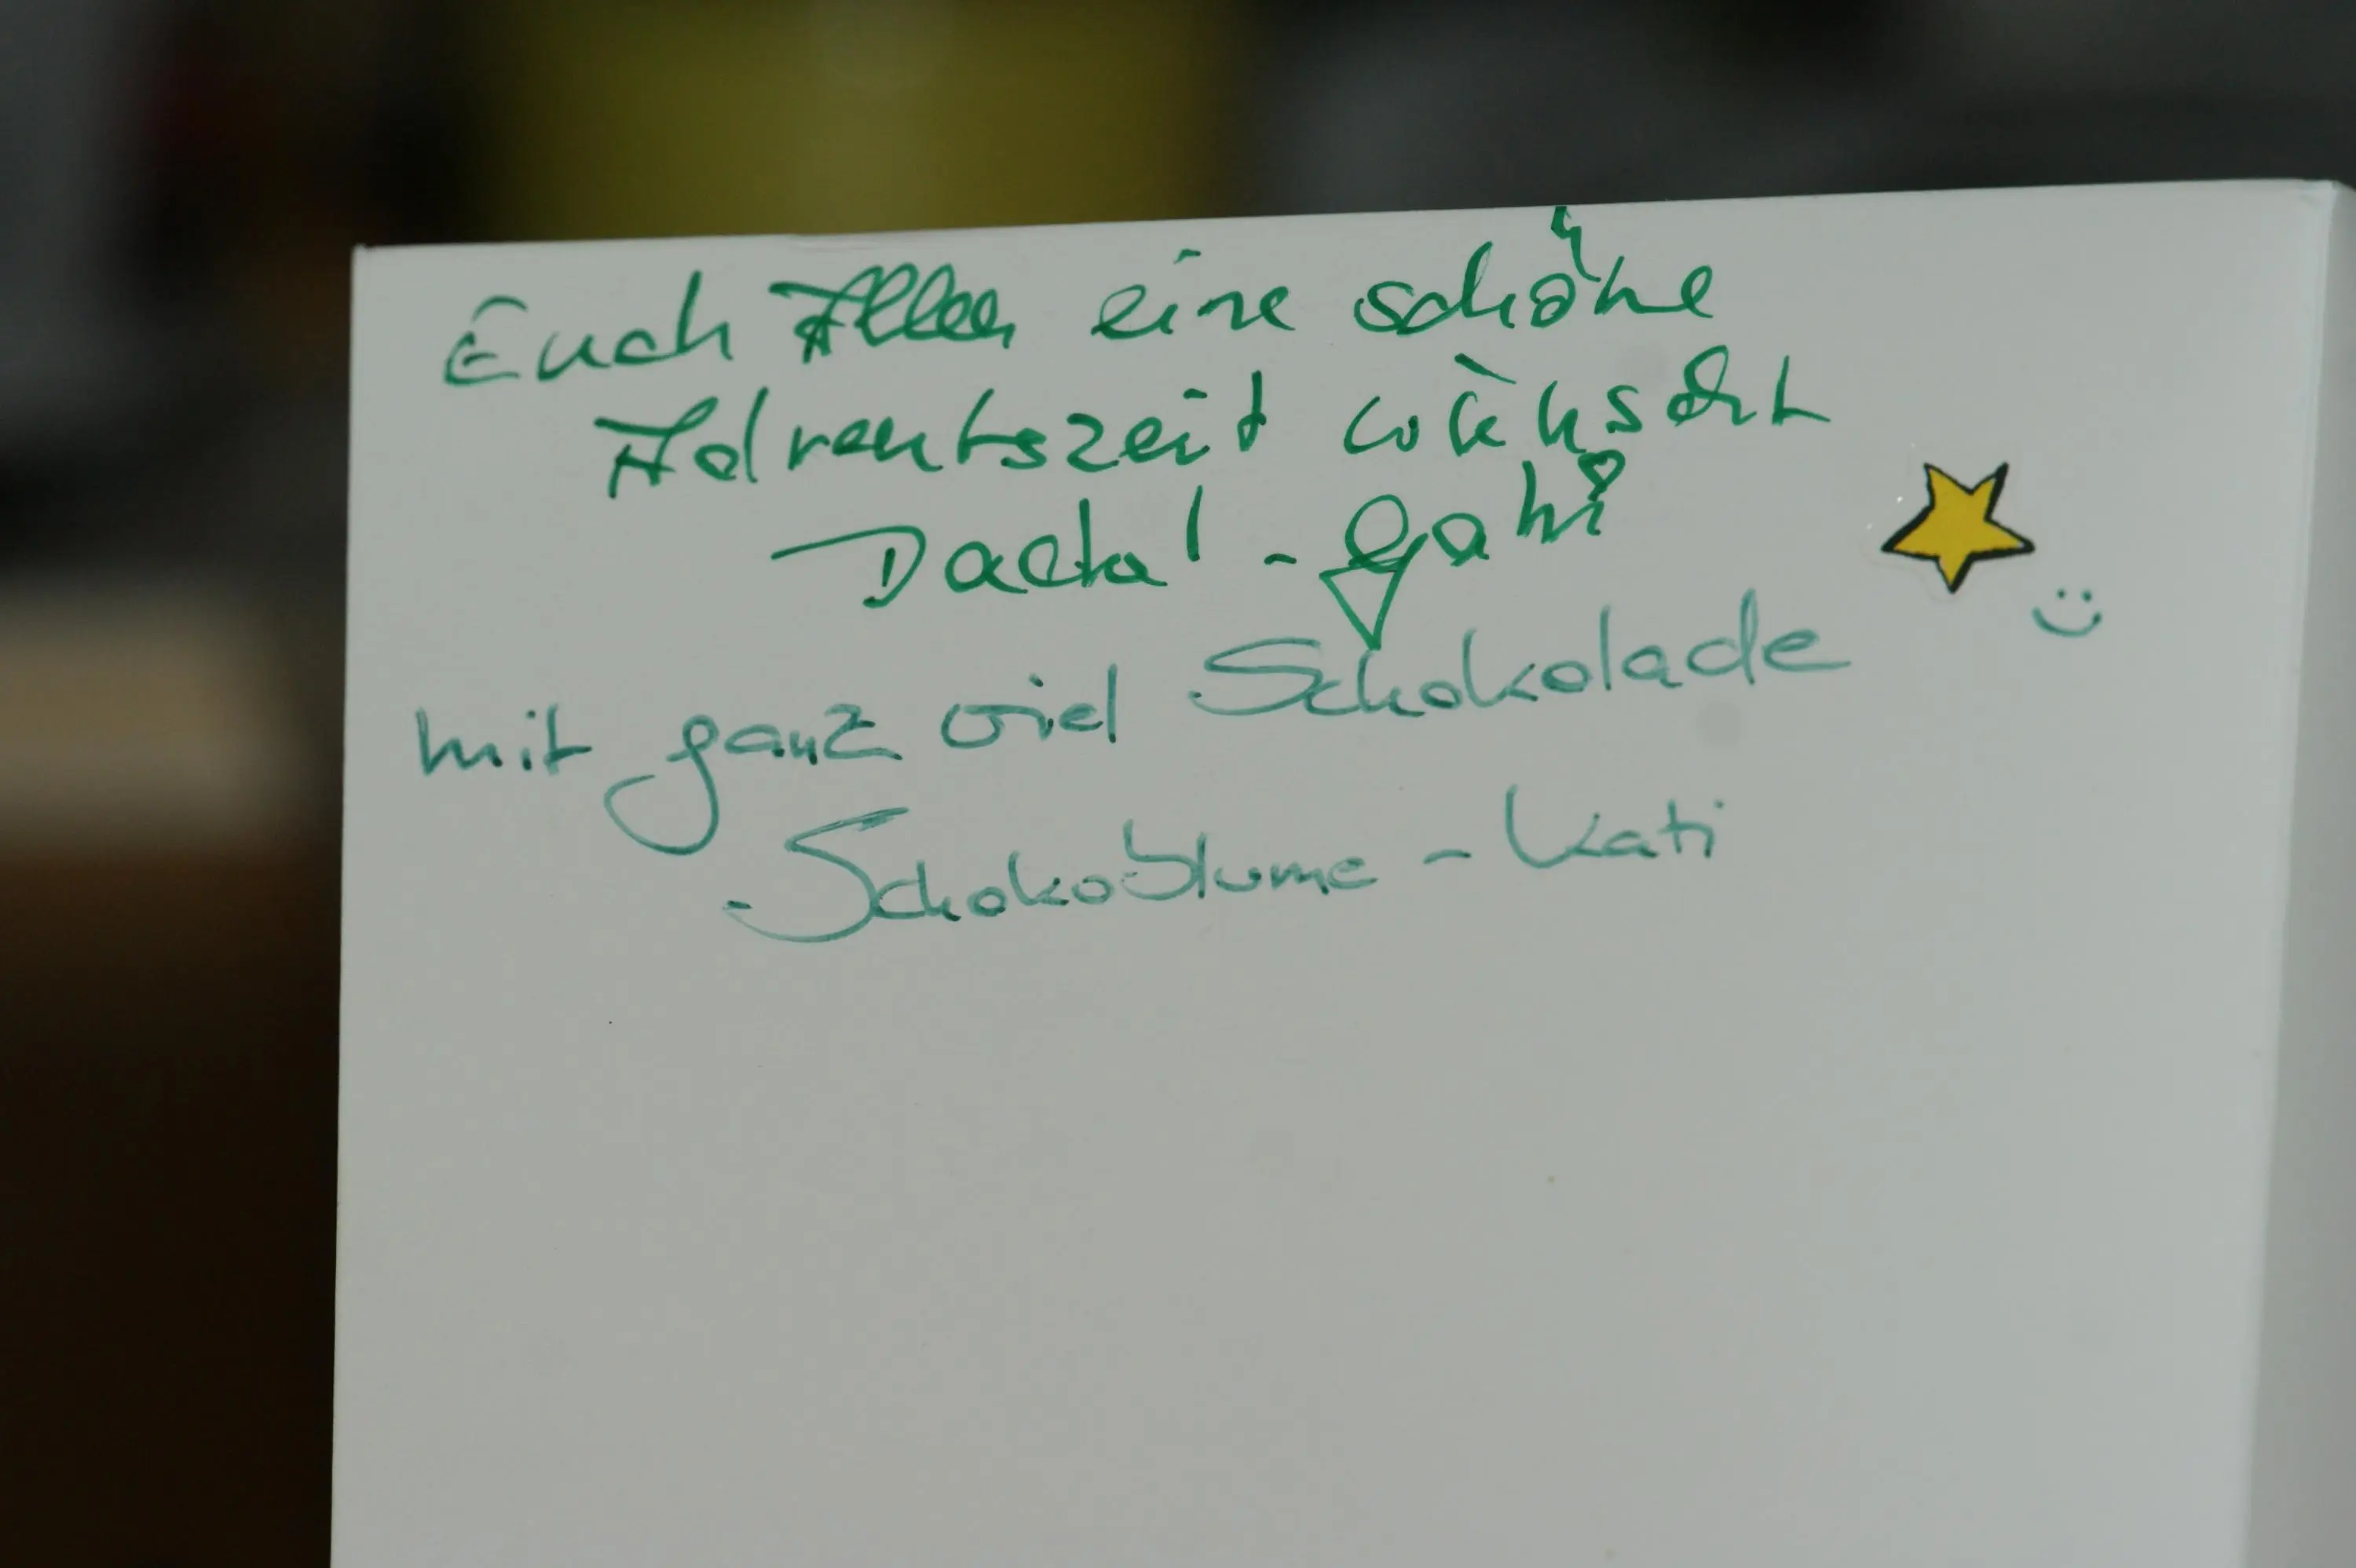 Euch Allen eine schöne
Adventszeit wünscht
Dachal - Gabi
mit ganz viel Schokolade
Schokoblume - Kati